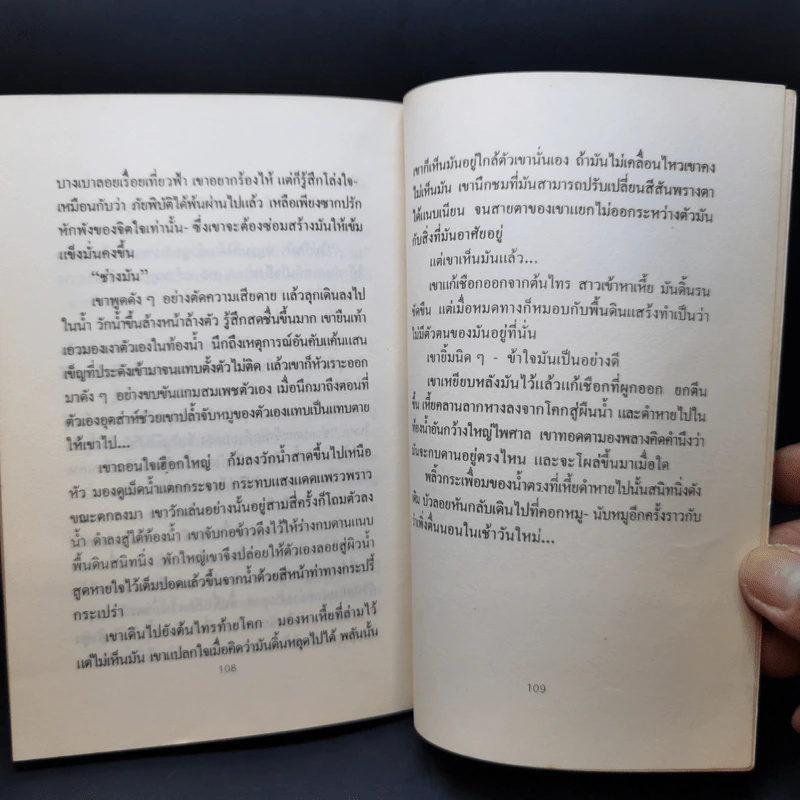 บางเบาลอยเรื่อยเที่ยวฟ้า เขาอยากร้องไห้ แต่ก็รู้สึกโล่งใจ-
เหมือนกับว่า ภัยพิบัติได้พ้นผ่านไปแล้ว เหลือเพียงซากปรัก
หักพังของจิตใจเท่านั้น- ซึ่งเขาจะต้องซ่อมสร้างมันให้เข้ม
แข็งมั่นคงขึ้น
“ช่างมัน”
เขาพูดดัง ๆ อย่างตัดความเสียดาย แล้วลุกเดินลงไป
ในน้ำ วักน้ำขึ้นล้างหน้าล้างตัว รู้สึกสดชื่นขึ้นมาก เขายืนเท้า
เอวมองเงาตัวเองในท้องน้ำ นึกถึงเหตุการณ์อันคับแค้นแสน
เข็ญที่ประดังเข้ามาจนแทบตั้งตัวไม่ติด แล้วเขาก็หัวเราะออก
มาดัง ๆ อย่างขบขันแกมสมเพชตัวเอง เมื่อนึกมาถึงตอนที่
ตัวเองอุตส่าห์ช่วยเขาปล้ำจับหมูของตัวเองแทบเป็นแทบตาย
ให้เขาไป...
เขาถอนใจเฮือกใหญ่ ก้มลงวักน้ำสาดขึ้นไปเหนือ
หัว มองดูเม็ดน้ำแตกกระจาย กระทบแสงแดดแพรวพราว
ขณะตกลงมา เขาวักเล่นอย่างนั้นอยู่สามสี่ครั้งก็โถมตัวลง
น้ำ ดำลงสู่ใต้ท้องน้ำ เขาจับกอข้าวดึงไว้ให้ร่างกบดานแนบ
พื้นดินสนิทนิ่ง พักใหญ่เขาจึงปล่อยให้ตัวเองลอยสู่ผิวน้ำ
สูดหายใจไว้เต็มปอดแล้วขึ้นจากน้ำด้วยสีหน้าท่าทางกระปรี้
กระเปร่า
เขาเดินไปยังต้นไทรท้ายโคก มองหาเหี้ยที่ล่ามไว้
แต่ไม่เห็นมัน เขาแปลกใจเมื่อคิดว่ามันดิ้นหลุดไปได้ พลันนั้น
108
เขาก็เห็นมันอยู่ใกล้ตัวเขานั่นเอง ถ้ามันไม่เคลื่อนไหวเขาคง
ไม่เห็นมัน เขานึกชมที่มันสามารถปรับเปลี่ยนสีสันพรางตา
ได้แนบเนียน จนสายตาของเขาแยกไม่ออกระหว่างตัวมัน
กับสิ่งที่มันอาศัยอยู่
แต่เขาเห็นมันแล้ว...
เขาแก้เชือกออกจากต้นไทร สาวเข้าหาเหี้ย มันดิ้นรน
ขัดขืน แต่เมื่อหมดทางก็หมอบกับพื้นดินแสร้งทำเป็นว่า
ไม่มีตัวตนของมันอยู่ที่นั่น
เขายิ้มนิด ๆ - ข้าใจมันเป็นอย่างดี
เขาเหยียบหลังมันไว้แล้วแก้เชือกที่ผูกออก ยกตีน
ขึ้น เหี้ยคลานลากหางลงจากโคกสู่ผืนน้ำ และดำหายไปใน
ท้องน้ำอันกว้างใหญ่ไพศาล เขาทอดตามองพลางคิดคำนึงว่า
มันจะกบดานอยู่ตรงไหน และจะโผล่ขึ้นมาเมื่อใด
พลิ้วกระเพื่อมของน้ำตรงที่เหี้ยดำหายไปนั้นสนิทนิ่งดัง
เดิม บัวลอยหันกลับเดินไปที่คอกหมู- นับหมูอีกครั้งราวกับ
ว่าเพิ่งตื่นนอนในเช้าวันใหม่...
109